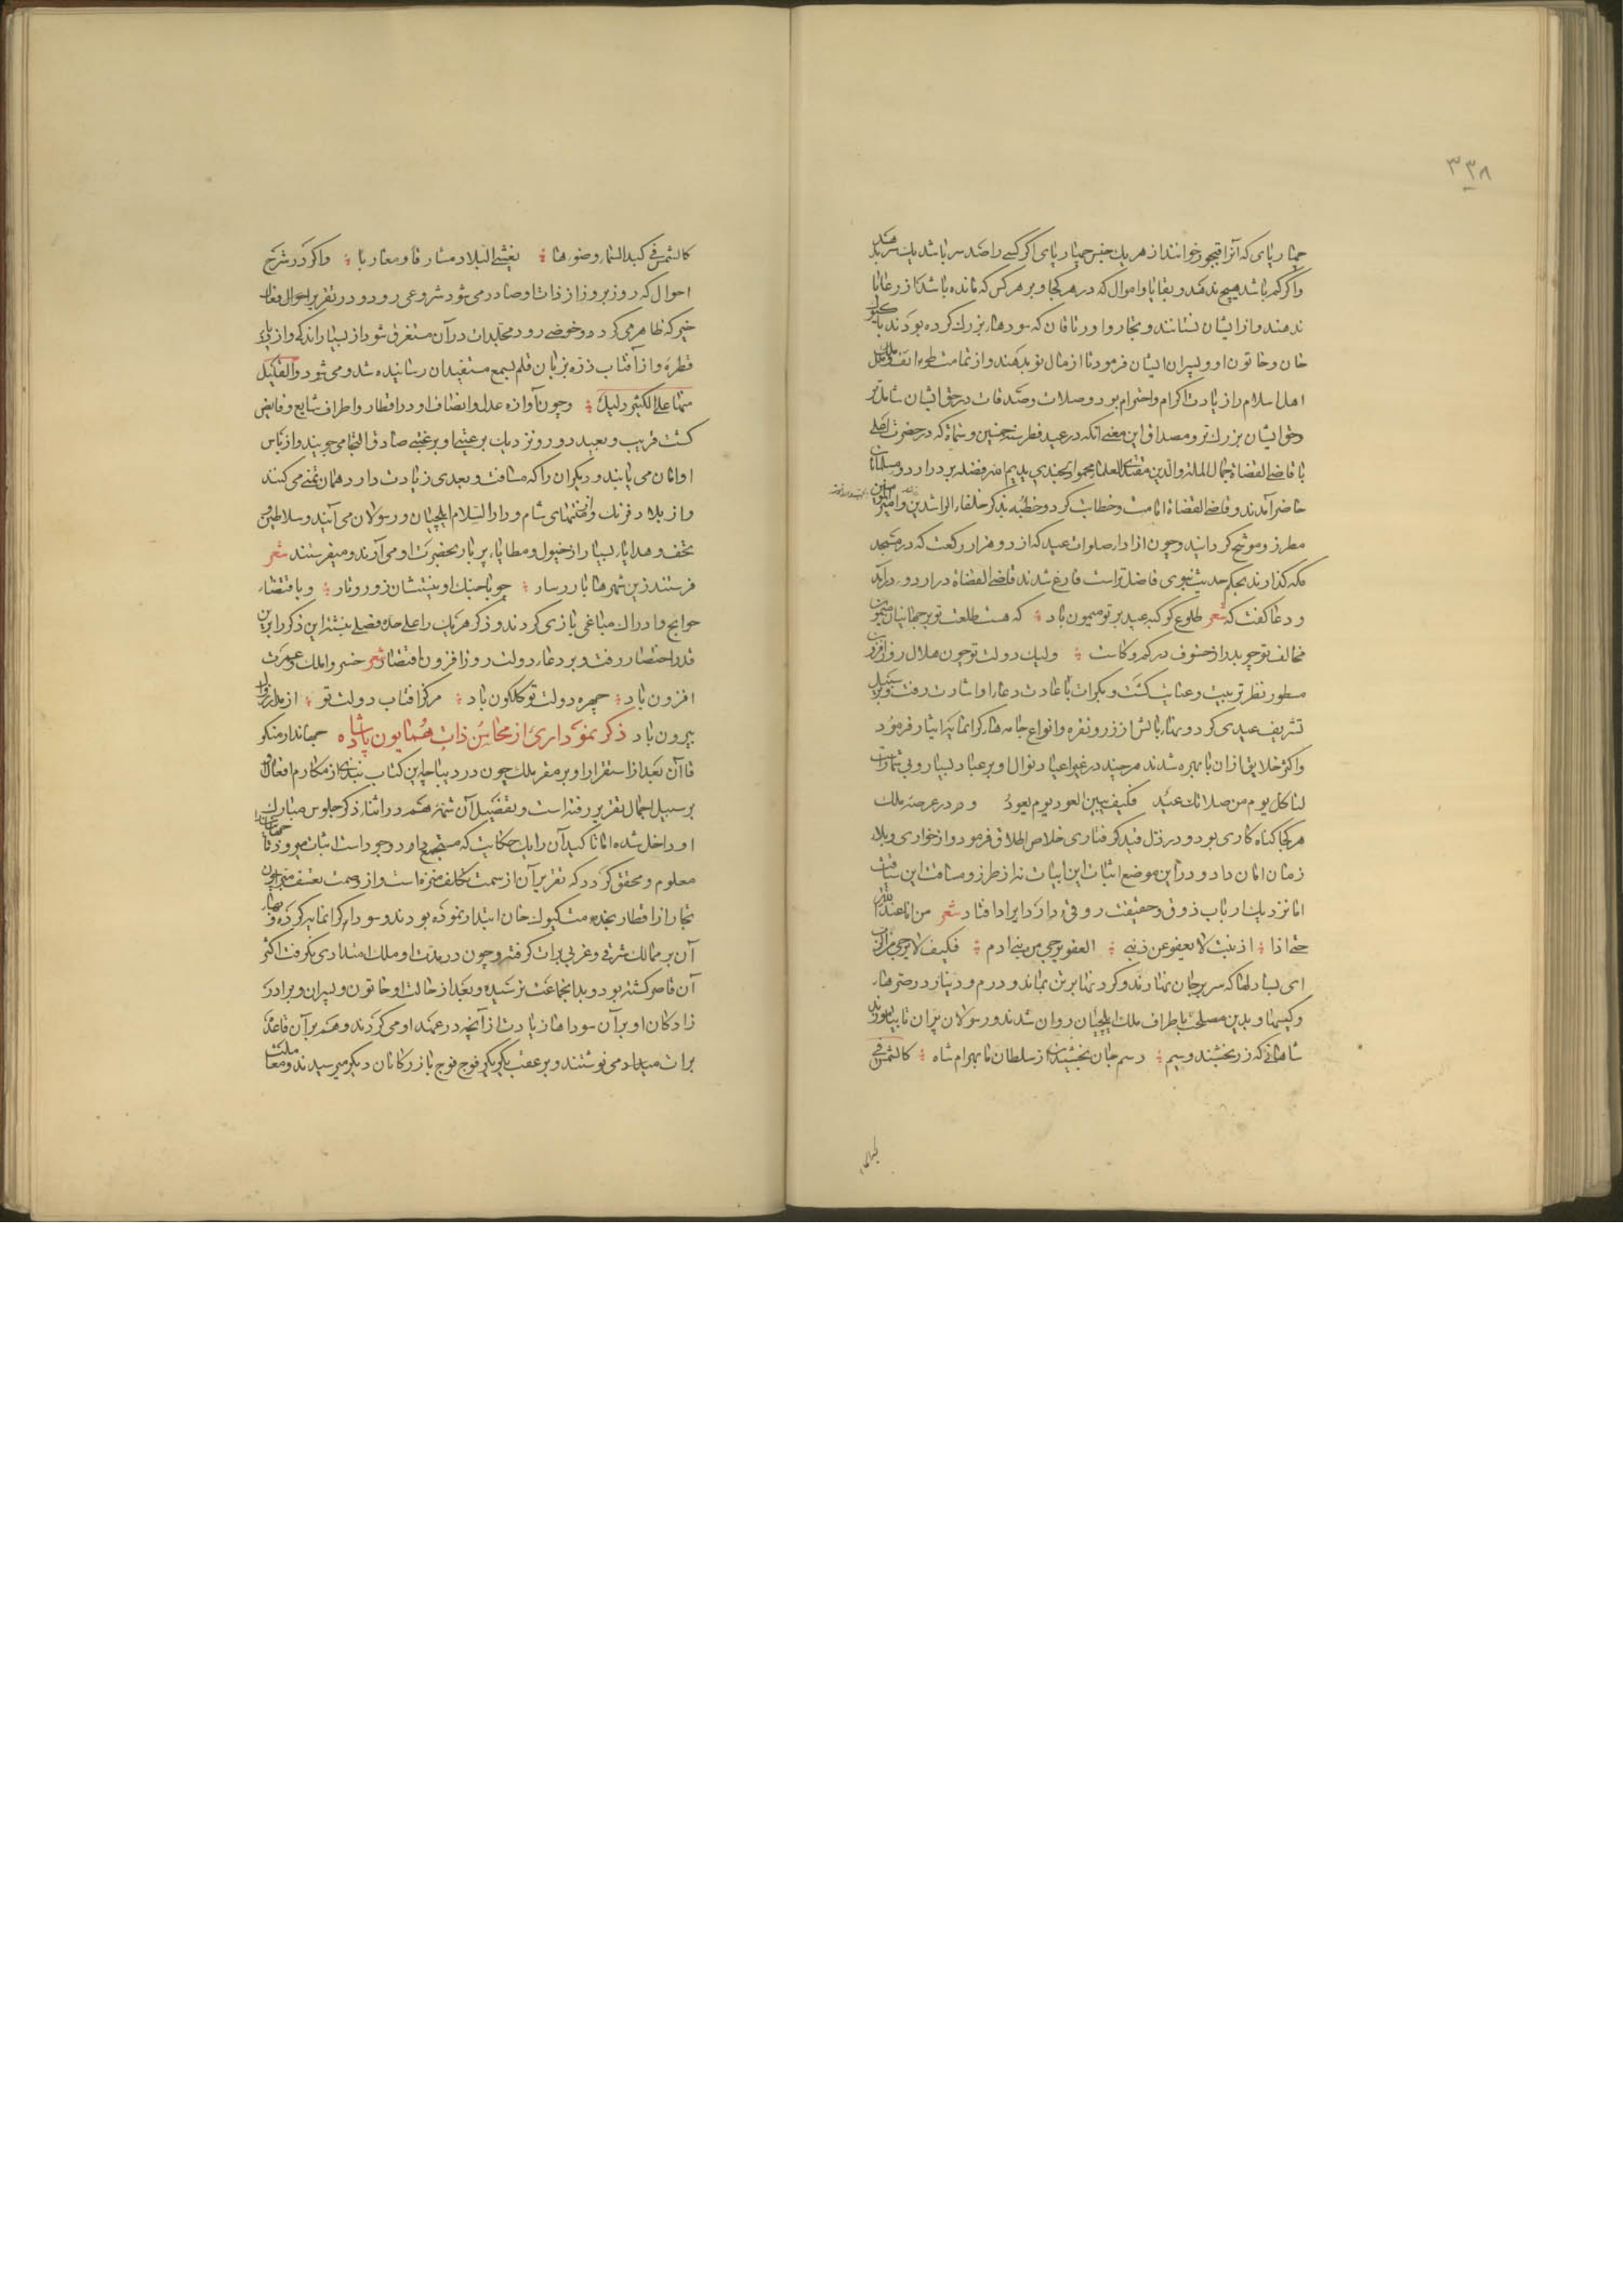 ۳۳۸
چهارپای که آنرا قبجور خوانند از هر یک جنس چهارپای اگر کسی را صد سر باشد یک سر بدهند
واکر کم باشد هیچ ندهند و بقایا و اموال که در هر کجا و بر هر کس که مانده باشد از رعایا
ندهند و از ایشان نستانند و تجار و اورتاقان که سودهاء بزرگ کرده بودند با کیوک
خان و خاتون او و پسران ایشان فرمود تا از مال نو بدهند و از تمامت طوایف و ملل
اهل اسلام را زیادت اکرام و احترام بود و صلات و صدقات در حق ایشان شامل تر
وحق ایشان بزرک تر و مصداق این معنی آنکه در عید فطر سنه خمسین و ستمایه که در حضرت اعلی
با قاضی القضاة جمال الملة والدین مقتدی العلما محمود الخجندی یدیم الله فضله بر در اردو مسلمانان
حاضر آمدند و قاضی القضاة امامت و خطابت کرد و خطبه بذکر خلفاء الراشدین و امیر المؤمنین
مطرز و موشح کردانید و چون از ادا صلوات عید که از دو هزار رکعت که در مسجد
مکه کذارند بحکم حدیث نبوی فاضل تراست فارغ شدند قاضی القضاة در اردو درآمد
و دعا کفت که شعر طلوع کوکبه عید بر تو میمون باد که هست طلعت تو بر جهانیان میمون
مخالف تو چو بدر از خسوف در کم و کاست ولیک دولت تو چون هلال روز افزون
منظور نظر تربیت و عنایت کشت و بکرات باعادت دعا او اشارت رفت و بر سبیل
تشریف عیدی کردونهاء بالش از زر و نقره و انواع جامهاء کرانمایه ایثار فرمود
واکثر خلایق از ان با بهره شدند هر چند در غیر اعیاد نوال او بر عباد بسیار و بی شمارست
لنا کل یوم من صلاتک عید فکیف یبین العود یوم یعود و در عرصه ملک
هر کجا کناه کاری بود و در ذل قید کرفتاری خلاص اطلاق فرمود و از خواری و بلاء
زمان امان داد و در این موضع اثبات این ابیات نه از طرز و مسافت این سیاقت
اما نزدیک ارباب ذوق و حقیقت رونقی دارد ایراد افتاد شعر من انا عند الله
حتی اذا اذنبت لا یعفو عن ذنبی العفو یرجی من بنی آدم فکیف لا یرجی من الرب
ای بسا دلها که سر بر جان نهادند و کرد نها بر تن بماند و درم و دینار در صرهاء
وکیسها و بدین مصلحت باطراف ملک ایلچیان روان شدند و رسولان پران تا بیابند
شاهانی که زر بخشند و سیم رسم جان بخشیدن از سلطان تا بهرام شاه کالشمس فی
کالشمس فی کبد السماء وضوءها یغشی البلاد مشارقا و مغاربا واکر در شرح
احوال که روز بروز از ذات او صادر می شود شروعی رود و در تقریر احوال افعال
خیر که ظاهر می کردد خوضی رود مجلدات در آن مستغرق شود از بسیار اندکی و از دریا
قطرۀ و از آفتاب ذره بزبان قلم بسمع مستفیدان رسانیده شد و می شود والقلیل
منها علی الکثیر دلیل وچون آوازه عدل و انصاف او در اقطار و اطراف شایع و فایض
کشت قریب و بعید دور و نزدیک برغبتی و برغبتی صادق التجا می جویند و از باس
او امان می یابند و دیکران را که مسافت و بعدی زیادت دارد همان تمنی می کنند
و از بلاد فرنک و منتهای شام و دار السلام ایلچیان و رسولان می آیند و سلاطین
تحف و هدایاء بسیار از خیول و مطایاء پر بار بحضرت او می آرند و میفرستند شعر
فرستند زین شهرها بار و ساو چو با جنک او نیستشان زور و تاو وباقتضاء
حوایج و ادراک مباغی بازمی کردند و ذکر هریک را علی حده فصلی نبشته این ذکر را برین
قدر اختصار رفت و بر دعاء دولت روز افزون اقتصار شعر خسروا ملک و عمرت
افزون باد چهره دولت تو کلکون باد مرکز افتاب دولت تو از مدار زوال
بیرون باد ذکر نموداری از محاسن ذات همایون پادشاه جهاندار منکو
قاآن بعد از استقرار او بر مقر ملک چون در دیباچه این کتاب نبذی از مکارم افعال او
برسبیل اجمال تقریر رفته است و تفضیل آن شمۀ هم در اثناء ذکر جلوس مبارک
او داخل شده اما تاکید آن را یک حکایت که مستجمع داد و جود است اثبات میرود تا جهانیان را
معلوم و محقق کردد که تقریر آن از سمت تکلف منزه است و از وصمت تعسف مبرا چون
تجار از اقطار بخدمت کیوک خان ابتدار نموده بودند و سوداهاء کرانمایه کرده و بهاء
آن بر ممالک شرقی و غربی برات کرفته و چون در مدت او ملک امتدادی نکرفت اکثر
آن قاصر کشته بود و بدان جماعت نرسیده و بعد از حالت او خاتون و پسران و برادر
زادکان او بر آن سوداها زیادت از آنچه در عهد او می کردند و هم بر آن قاعده
برات میداد می نوشتند و بر عقب یکدیکر فوج فوج بازرکانان دیکر میرسیدند و معاملت